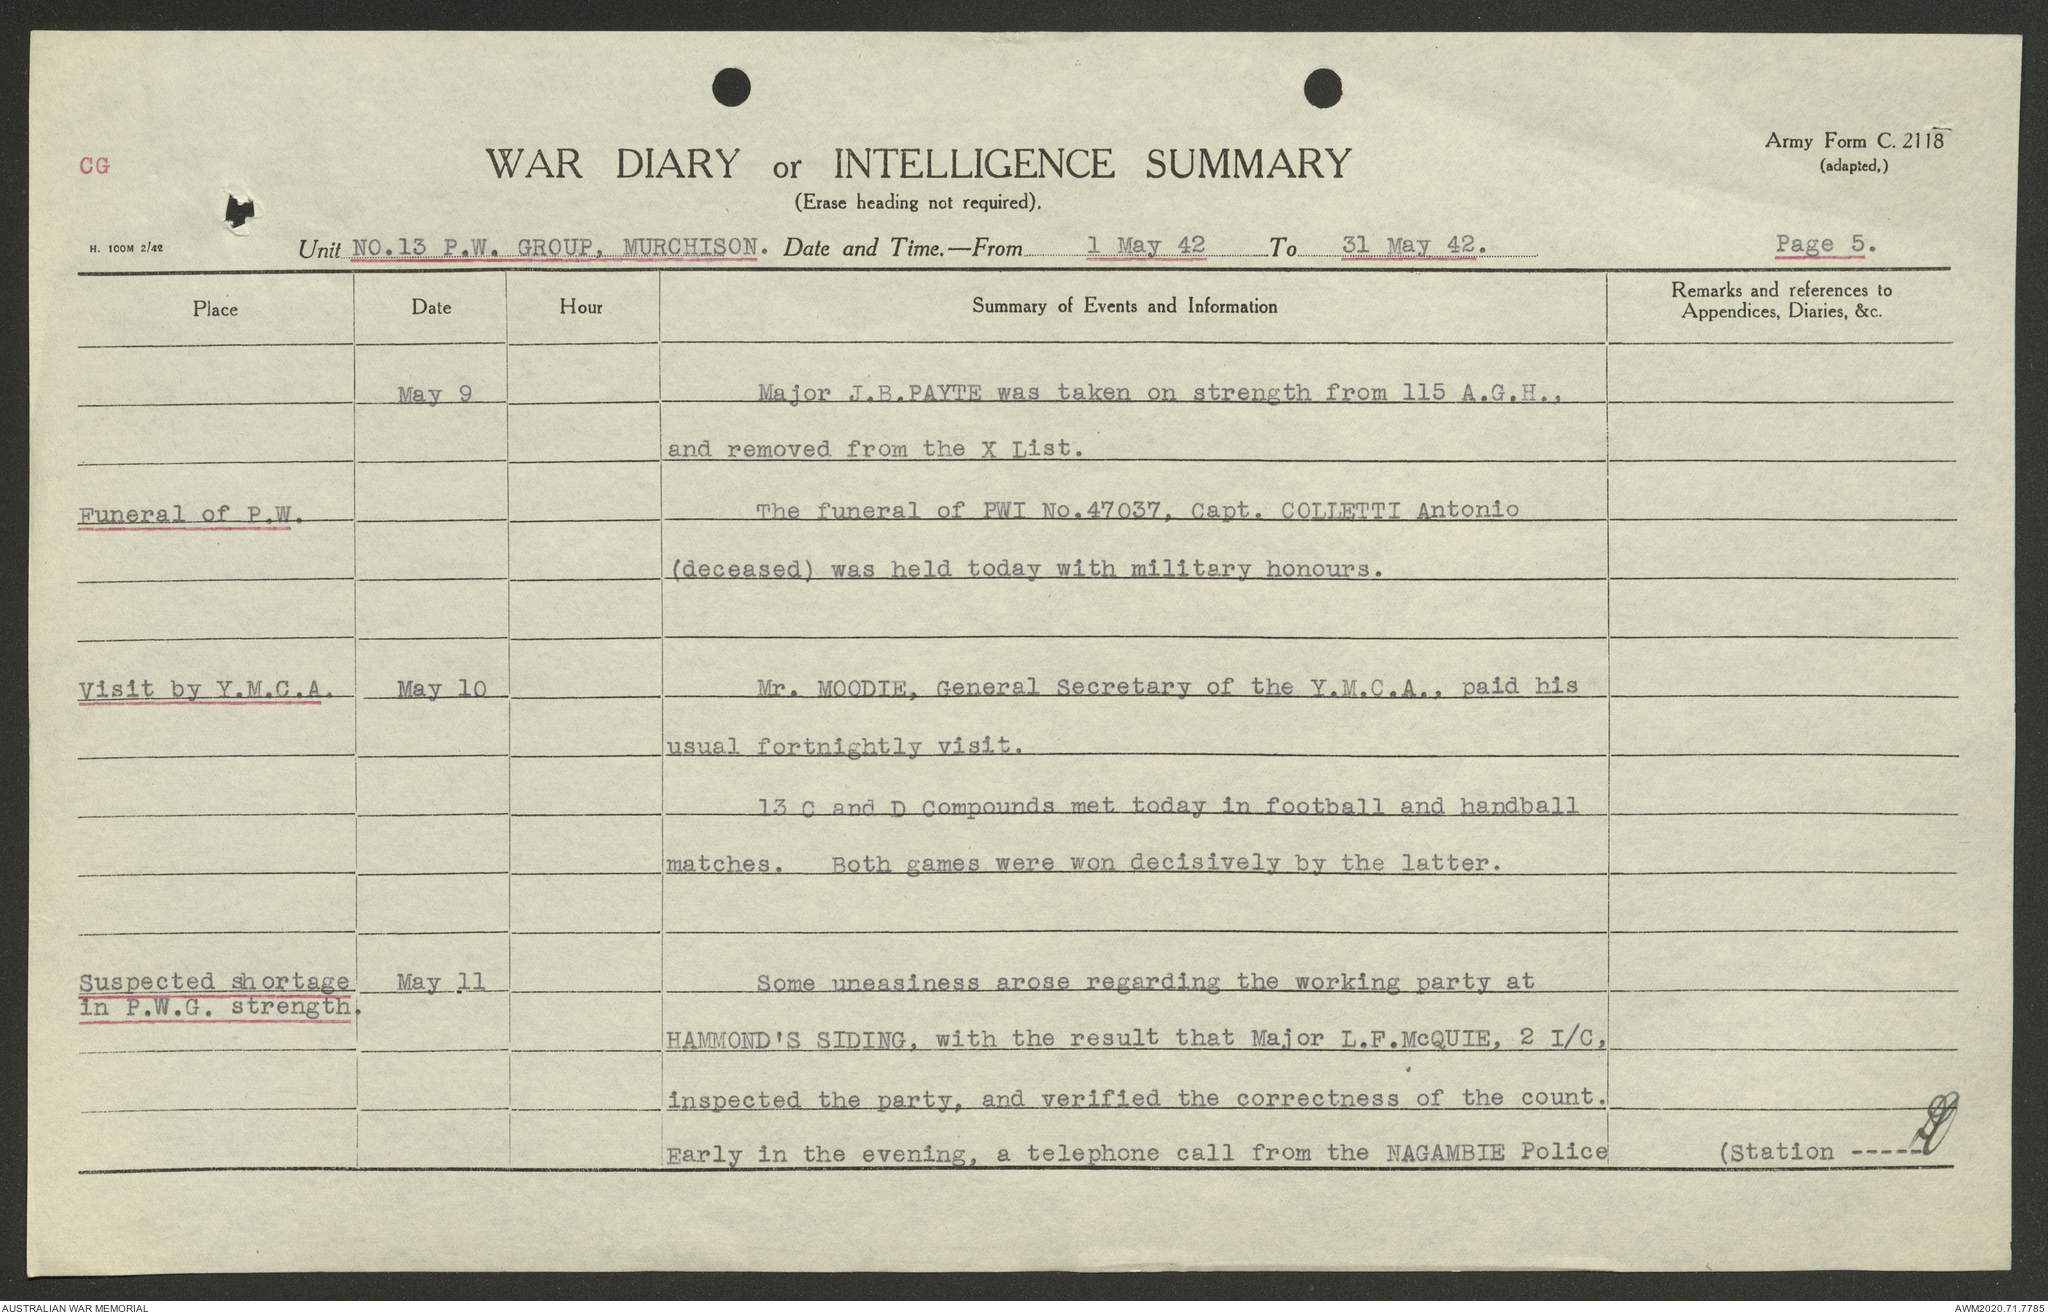 CG
WAR DIARY or INTELLIGENCE SUMMARY
Army Form C. 2118
(adapted.)
(Erase heading not required).
H. 100M 2/42
Unit NO.13 P.W. GROUP, MURCHISON. Date and Time.—From 1 May 42 To 31 May 42. Page 5.
Place Date Hour Summary of Events and Information Remarks and references to
Appendices, Diaries, &c.
May 9 Major J.B.PAYTE was taken on strength from 115 A.G.H.,
and removed from the X List.
Funeral of P.W. The funeral of PWI No.47037, Capt. COLLETTI Antonio
(deceased) was held today with military honours.
Visit by Y.M.C.A. May 10 Mr. MOODIE, General Secretary of the Y.M.C.A., paid his
usual fortnightly visit.
13 C and D Compounds met today in football and handball
matches. Both games were won decisively by the latter.
Suspected shortage May 11 Some uneasiness arose regarding the working party at
in P.W.G. strength.
HAMMOND'S SIDING, with the result that Major L.F.McQUIE, 2 I/C,
inspected the party, and verified the correctness of the count.
Early in the evening, a telephone call from the NAGAMBIE Police (Station -----
AUSTRALIAN WAR MEMORIAL AWM2020.71.7785